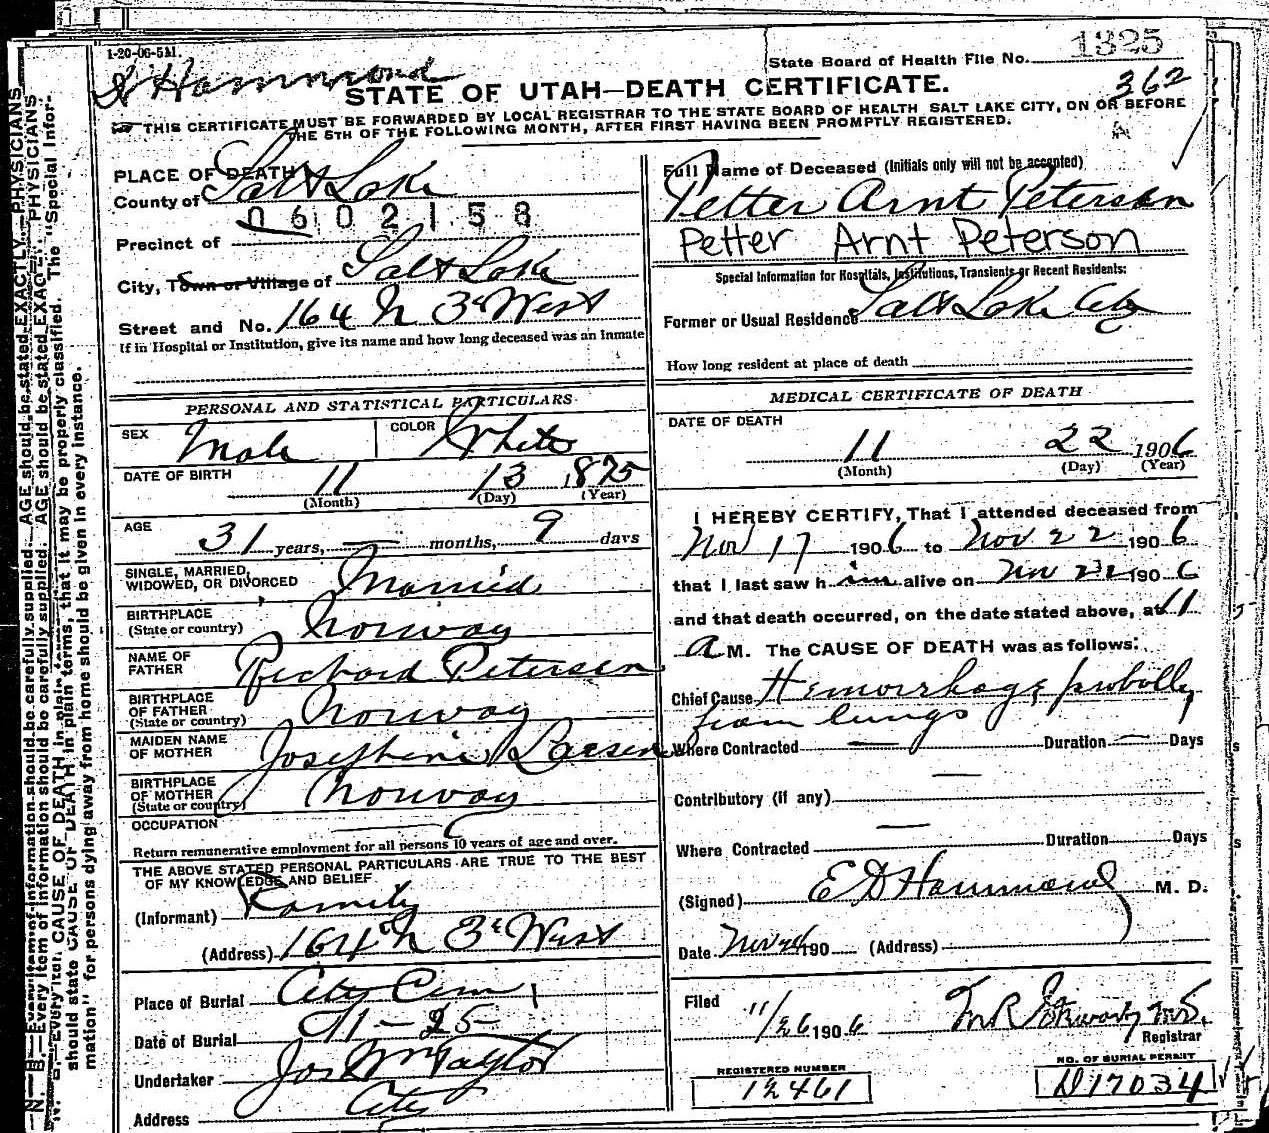 1-20-06-5M
State Board of Health File No. 1325
Hammond
362
STATE OF UTAH—DEATH CERTIFICATE.
THIS CERTIFICATE MUST BE FORWARDED BY LOCAL REGISTRAR TO THE STATE BOARD OF HEALTH SALT LAKE CITY, ON OR BEFORE
THE 5TH OF THE FOLLOWING MONTH, AFTER FIRST HAVING BEEN PROMPTLY REGISTERED.
PLACE OF DEATH
County of Salt Lake
0602158
Precinct of
City, Town or Village of Salt Lake
Street and No. 164 N 3d West
If in Hospital or Institution, give its name and how long deceased was an Inmate
PERSONAL AND STATISTICAL PARTICULARS
SEX Male COLOR White
DATE OF BIRTH 11 13 1875
(Month) (Day) (Year)
AGE 31 years, — months, 9 days
SINGLE, MARRIED, WIDOWED, OR DIVORCED Married
BIRTHPLACE (State or country) Norway
NAME OF FATHER Richard Petersen
BIRTHPLACE OF FATHER (State or country) Norway
MAIDEN NAME OF MOTHER Josephine Larsen
BIRTHPLACE OF MOTHER (State or country) Norway
OCCUPATION
Return remunerative employment for all persons 10 years of age and over.
THE ABOVE STATED PERSONAL PARTICULARS ARE TRUE TO THE BEST
OF MY KNOWLEDGE AND BELIEF
(Informant) Family
(Address) 164 N 3d West
Place of Burial City Cem
Date of Burial 11-25
Undertaker Jos Wm Taylor
Address City
Full Name of Deceased (Initials only will not be accepted)
Petter Arnt Petersen
Petter Arnt Peterson
Special Information for Hospitals, Institutions, Transients or Recent Residents:
Former or Usual Residence Salt Lake City
How long resident at place of death
MEDICAL CERTIFICATE OF DEATH
DATE OF DEATH
11 22 1906
(Month) (Day) (Year)
I HEREBY CERTIFY, That I attended deceased from
Nov 17 1906 to Nov 22 1906
that I last saw him alive on Nov 22 1906
and that death occurred, on the date stated above, at 11
A M. The CAUSE OF DEATH was as follows:
Chief Cause Hemorrhage probably
from lungs
Where Contracted — Duration — Days
Contributory (if any) —
Where Contracted — Duration Days
(Signed) E D Hammond M. D.
Date Nov 24 190 (Address)
Filed 11/26 1906
Registrar
REGISTERED NUMBER
12461
NO. OF BURIAL PERMIT
D17034
N. B.—Every item of information should be carefully supplied. AGE should be stated EXACTLY. PHYSICIANS
should state CAUSE OF DEATH in plain terms, that it may be properly classified. The "Special Infor-
mation" for persons dying away from home should be given in every instance.